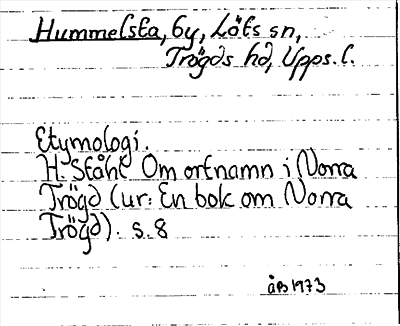 Hummelsta, by, Löts sn,
Trögds hd, Upps. l.
Etymologi.
H. Ståhl Om ortnamn i Norra
Trögd (ur: En bok om Norra
Trögd). s. 8
åb 1973